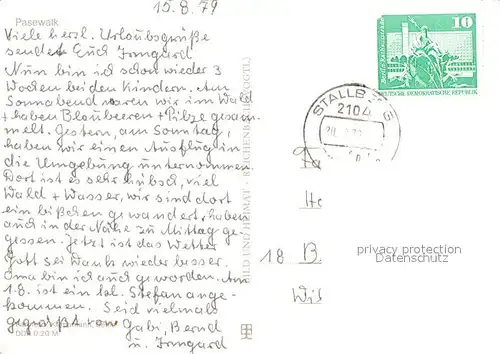 15.8.79
Pasewalk
Viele herzl. Urlaubsgrüße
sendet Euch Irmgard
Nun bin ich schon wieder 3
Wochen bei den Kindern. Am
Sonnabend waren wir im Wald
+ haben Blaubeeren + Pilze gesam=
melt. Gestern, am Sonntag,
haben wir einen Ausflug in
die Umgebung unternommen.
Dort ist es sehr hübsch, viel
Wald + Wasser, wir sind dort
ein bißchen gewandert, haben
auch in der Nähe zu Mittag ge-
gessen. Jetzt ist das Wetter
Gott sei Dank wieder besser.
Oma bin ich auch geworden. Am
1.8. ist ein kl. Stefan ange-
kommen. Seid vielmals
gegrüßt von Gabi, Bernd
u. Irmgard
BILD UND HEIMAT · REICHENBACH (VOGTL)
10
DEUTSCHE DEMOKRATISCHE REPUBLIK
STALLB
2104
Fa
He
18 B.
Wil
privacy protection
Datenschutz